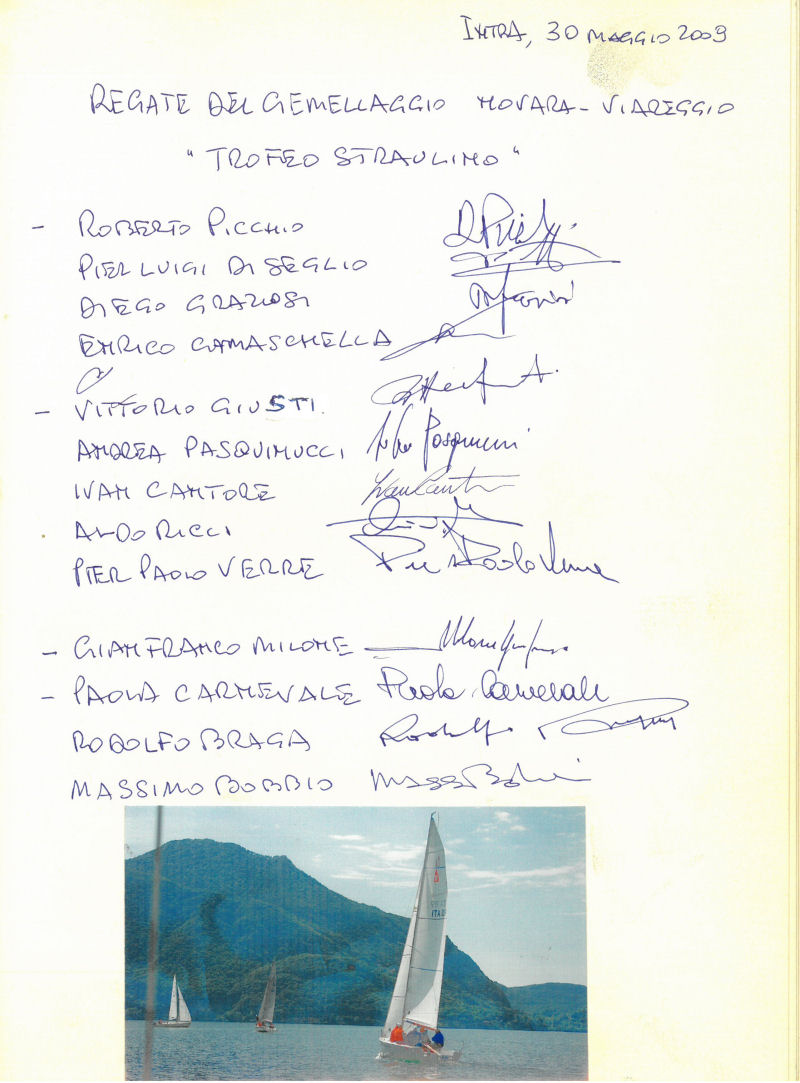 INTRA, 30 MAGGIO 2009
REGATE DEL GEMELLAGGIO NOVARA - VIAREGGIO
"TROFEO STRAULINO"
- ROBERTO PICCHIO
PIER LUIGI DI SEGLIO
DIEGO GRAZIOSI
ENRICO CAMASCHELLA
- VITTORIO GIUSTI.
ANDREA PASQUINUCCI
IVAN CANTORE Ivan Cantore
ALDO RICCI
PIER PAOLO VERRE Pier Paolo Verre
- GIANFRANCO MILONE
- PAOLA CARNEVALE Paola Carnevale
RODOLFO BRAGA Rodolfo
MASSIMO BOBBIO
ITA